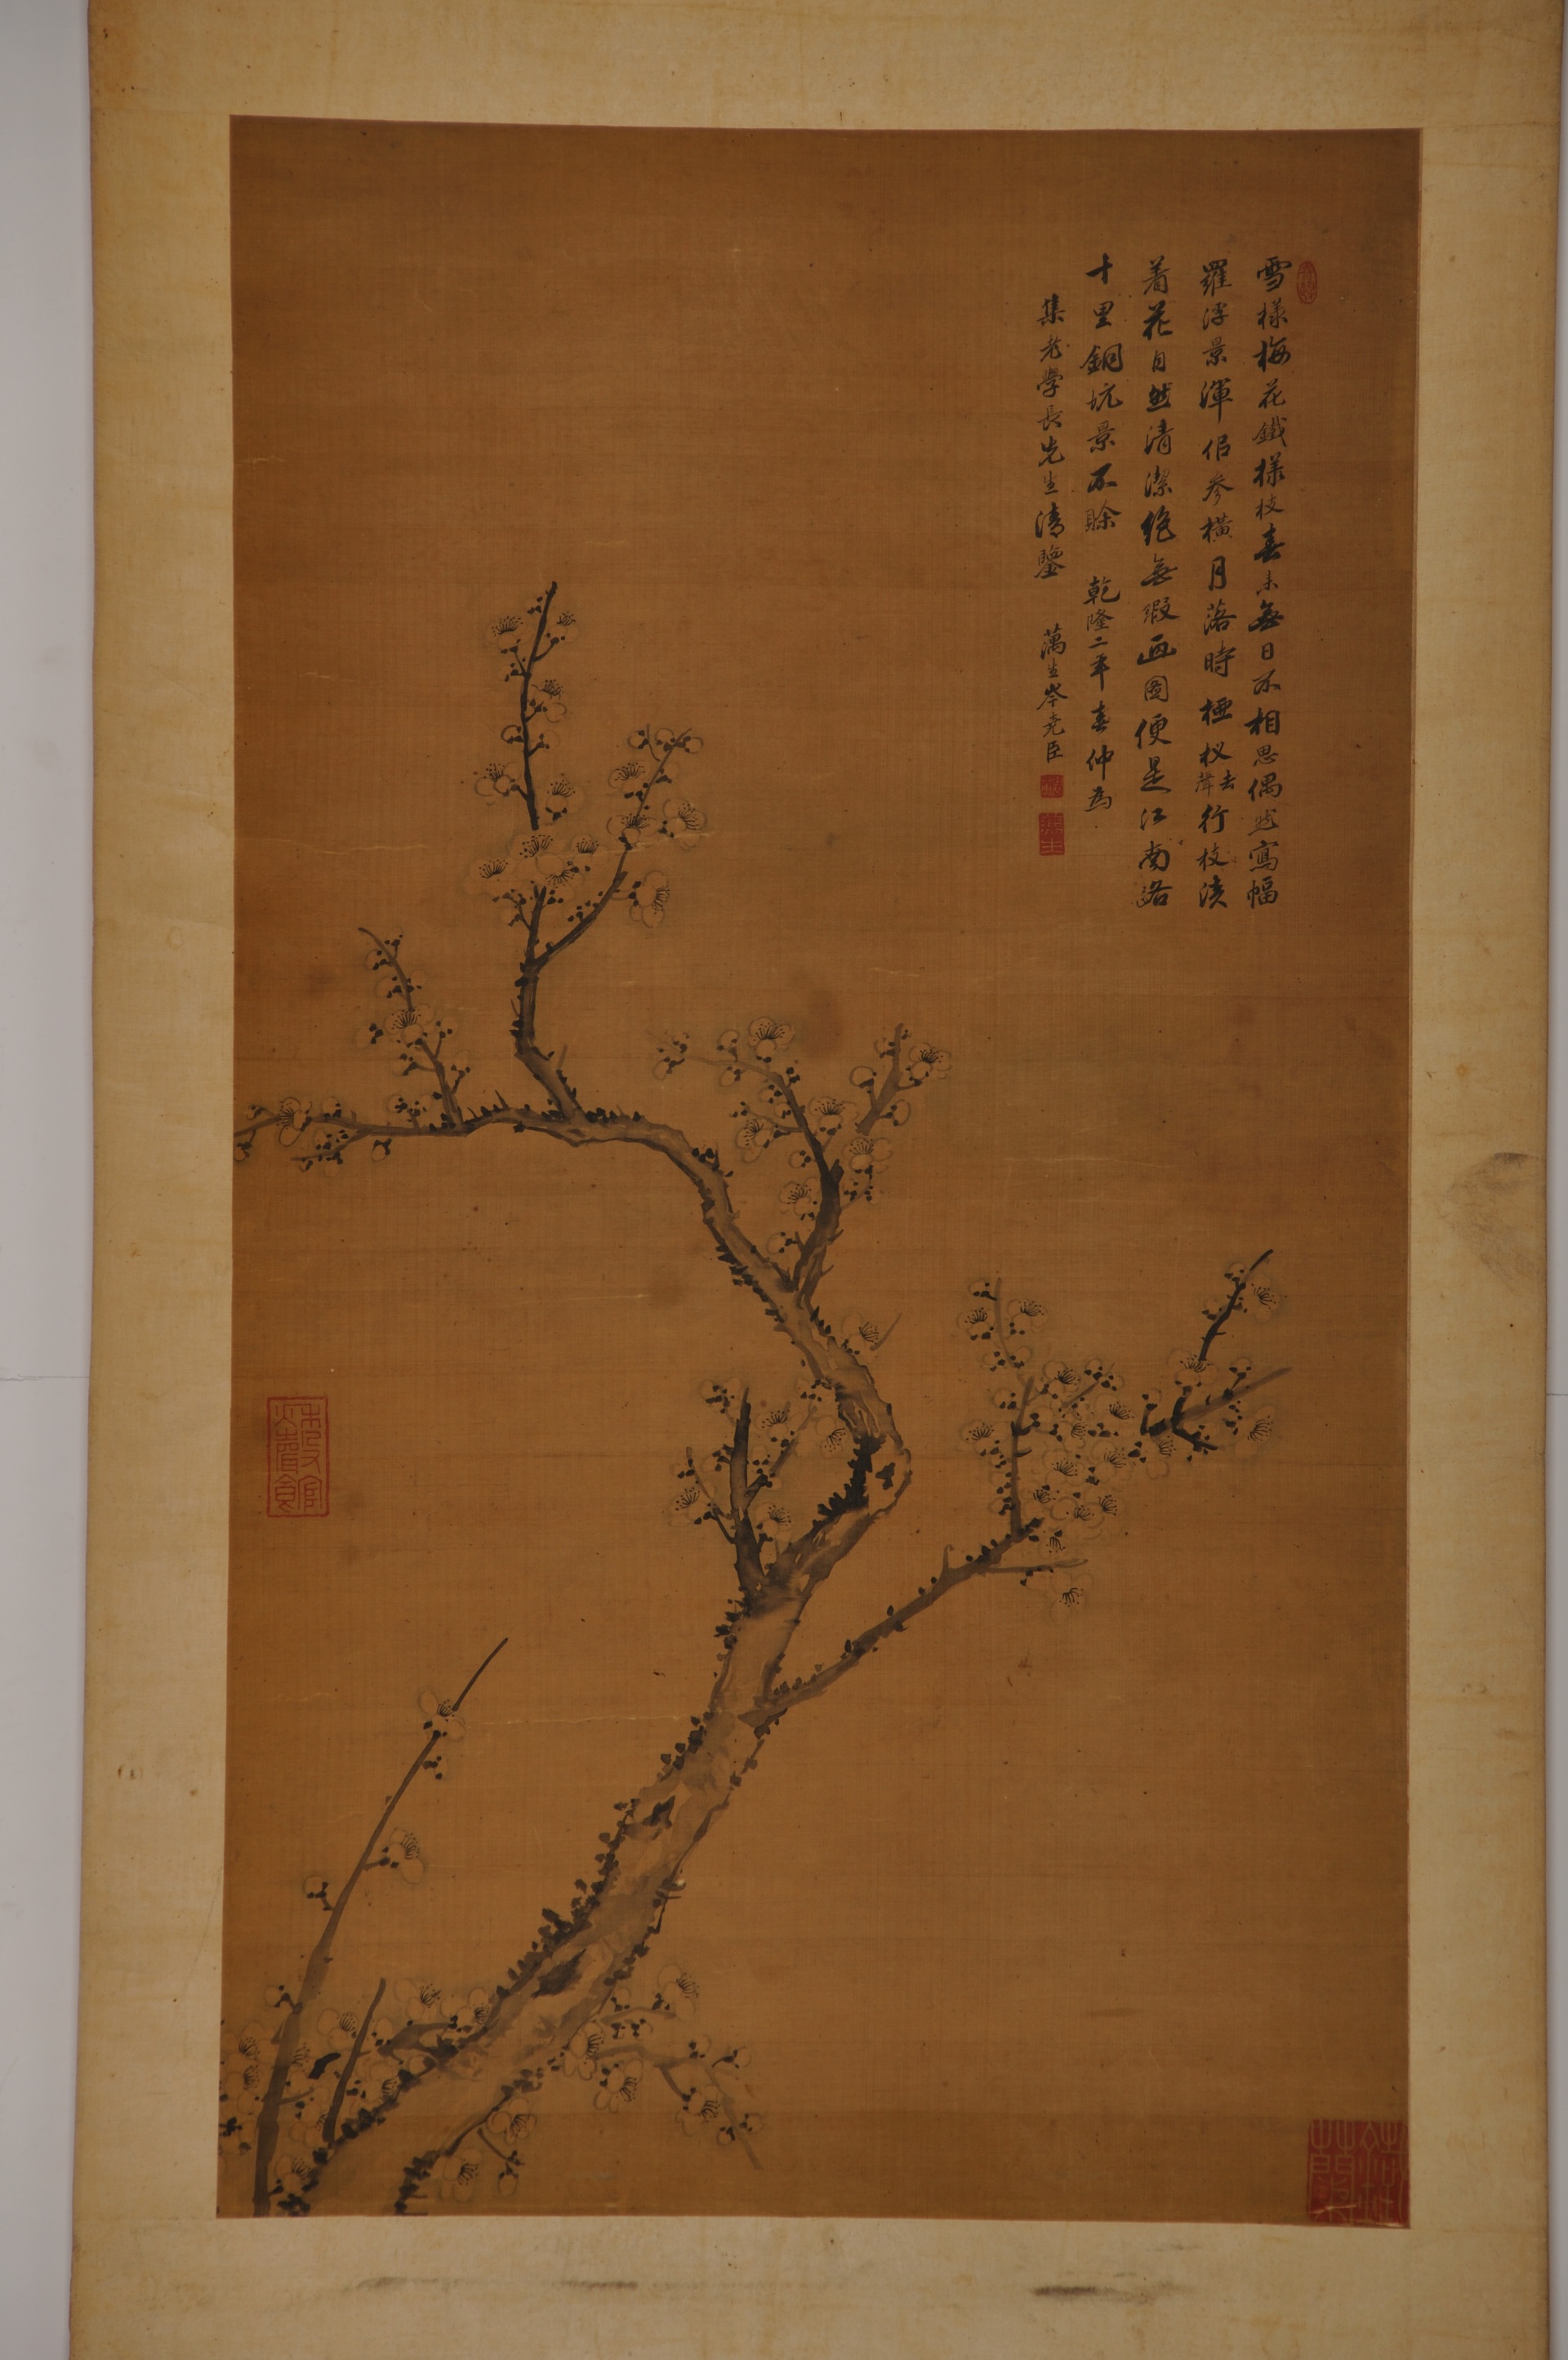 雪樣梅花鐵樣枝春來無日不相思偶然寫幅
羅浮景渾侣參橫月落時 枝須
去聲
着花自然清潔絶無瑕画圖便是江南路
十里銅坑景不賖 乾隆二年春仲為
集老學長先生清鑒 藕生岑堯臣